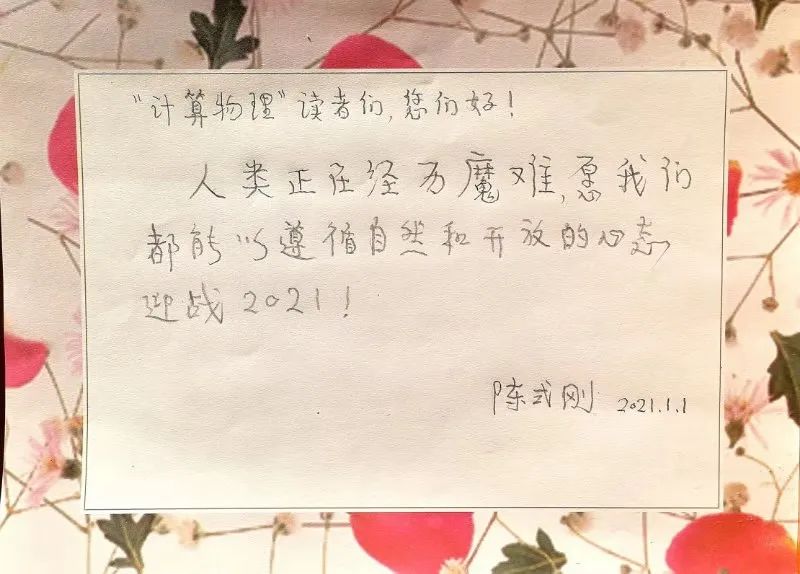 “计算物理”读者们,您们好！
人类正在经历魔难,愿我们
都能以遵循自然和开放的心态
迎战2021！
陈式刚 2021.1.1